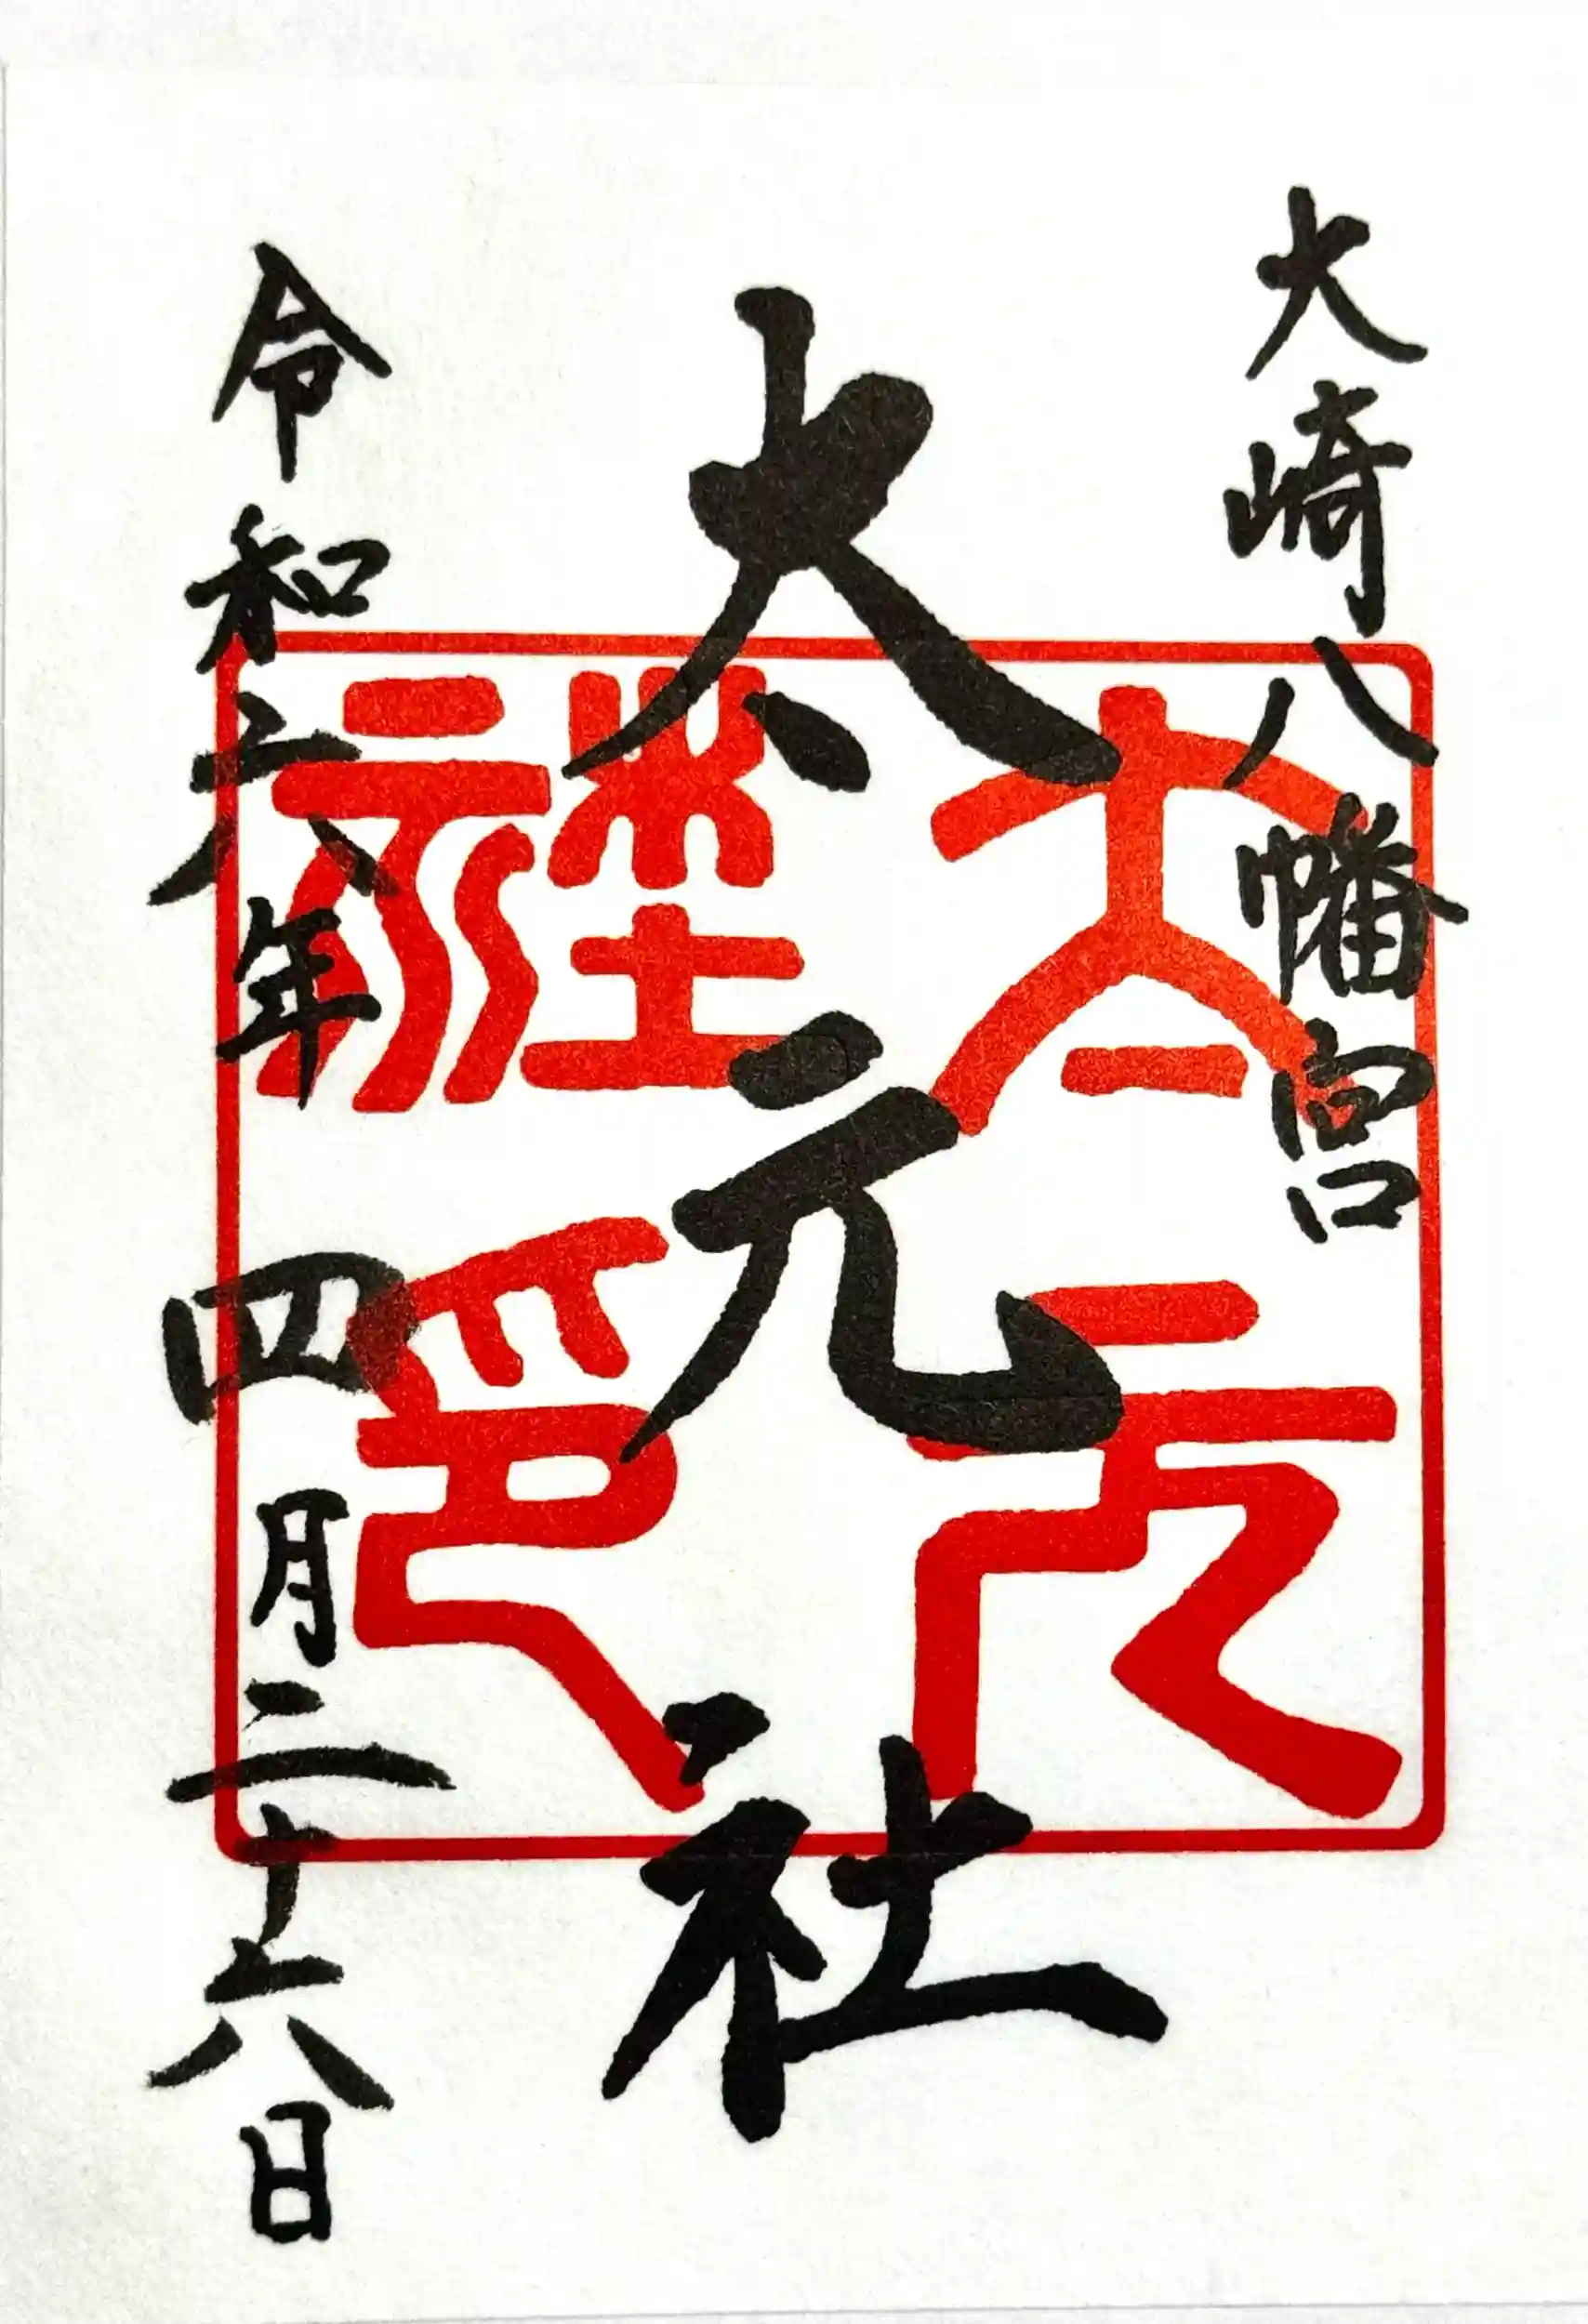 大崎八幡宮
太元社
太元社印
令和六年四月二十六日